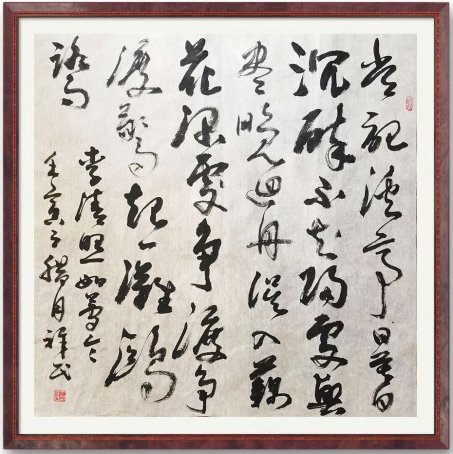 常記溪亭日暮
沉醉不知歸路興
盡晚迴舟誤入藕
花深處爭渡爭
渡驚起一灘鷗
鷺
李清照如夢令
壬寅臘月祥民